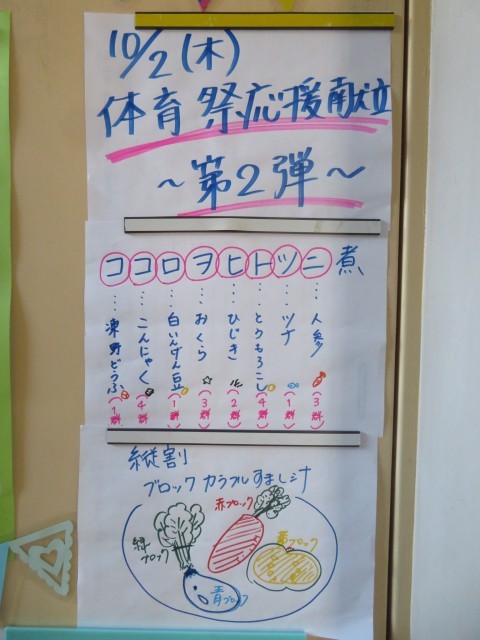 10/2(木)
体育祭応援献立
~第2弾~
ココロヲヒトツニ煮
コ…凍野どうふ(1群)
コ…こんにゃく(4群)
ロ…白いんげん豆(1群)
ヲ…おくら(3群)
ヒ…ひじき(2群)
ト…とうもろこし(4群)
ツ…ツナ(1群)
ニ…人参(3群)
縦割
ブロックカラフルすまし汁
赤ブロック
緑ブロック
黄ブロック
青ブロック